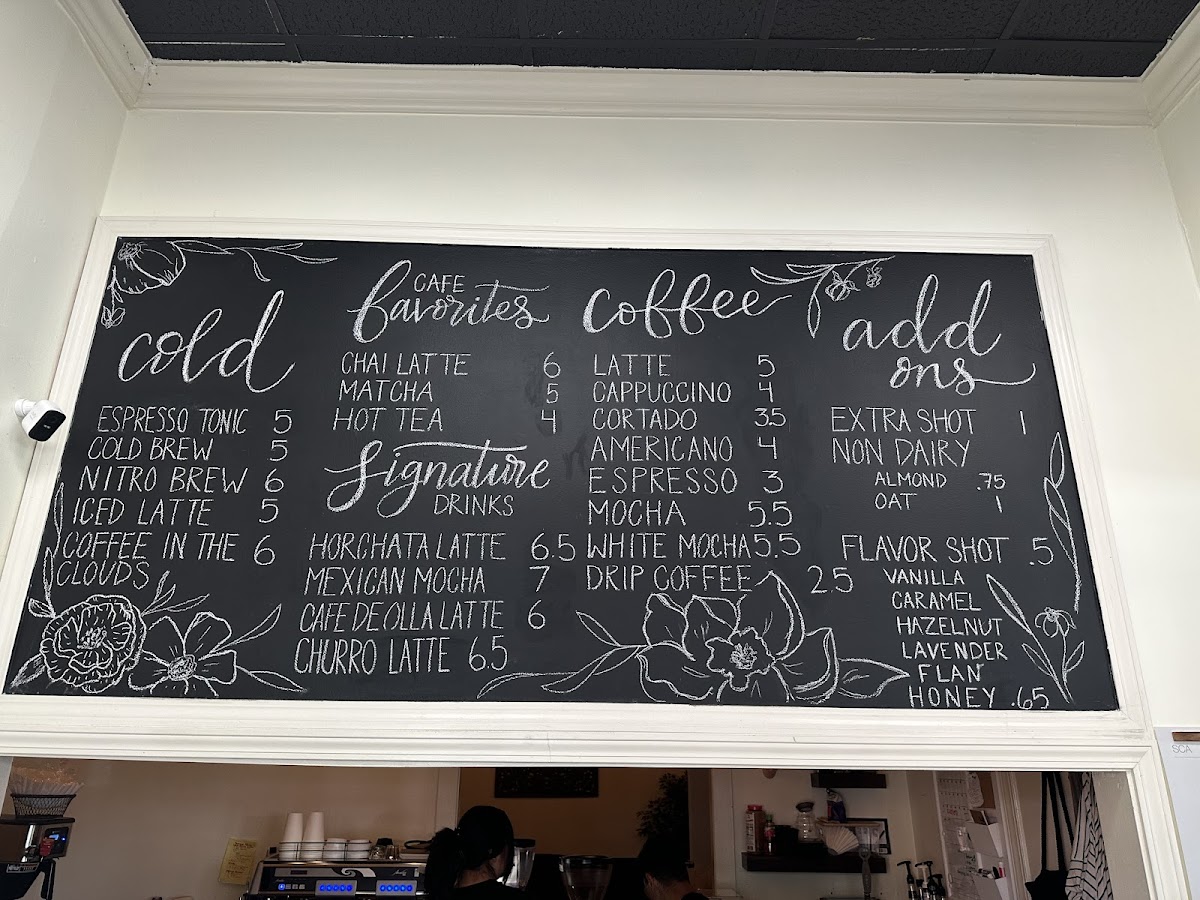 cold
ESPRESSO TONIC 5
COLD BREW 5
NITRO BREW 6
ICED LATTE 5
COFFEE IN THE 6
CLOUDS
CAFE
favorites
CHAI LATTE 6
MATCHA 5
HOT TEA 4
Signature
DRINKS
HORCHATA LATTE 6.5
MEXICAN MOCHA 7
CAFE DE OLLA LATTE 6
CHURRO LATTE 6.5
coffee
LATTE 5
CAPPUCCINO 4
CORTADO 3.5
AMERICANO 4
ESPRESSO 3
MOCHA 5.5
WHITE MOCHA 5.5
DRIP COFFEE 2.5
add
ons
EXTRA SHOT 1
NON DAIRY
ALMOND .75
OAT 1
FLAVOR SHOT .5
VANILLA
CARAMEL
HAZELNUT
LAVENDER
FLAN
HONEY .65
SCA